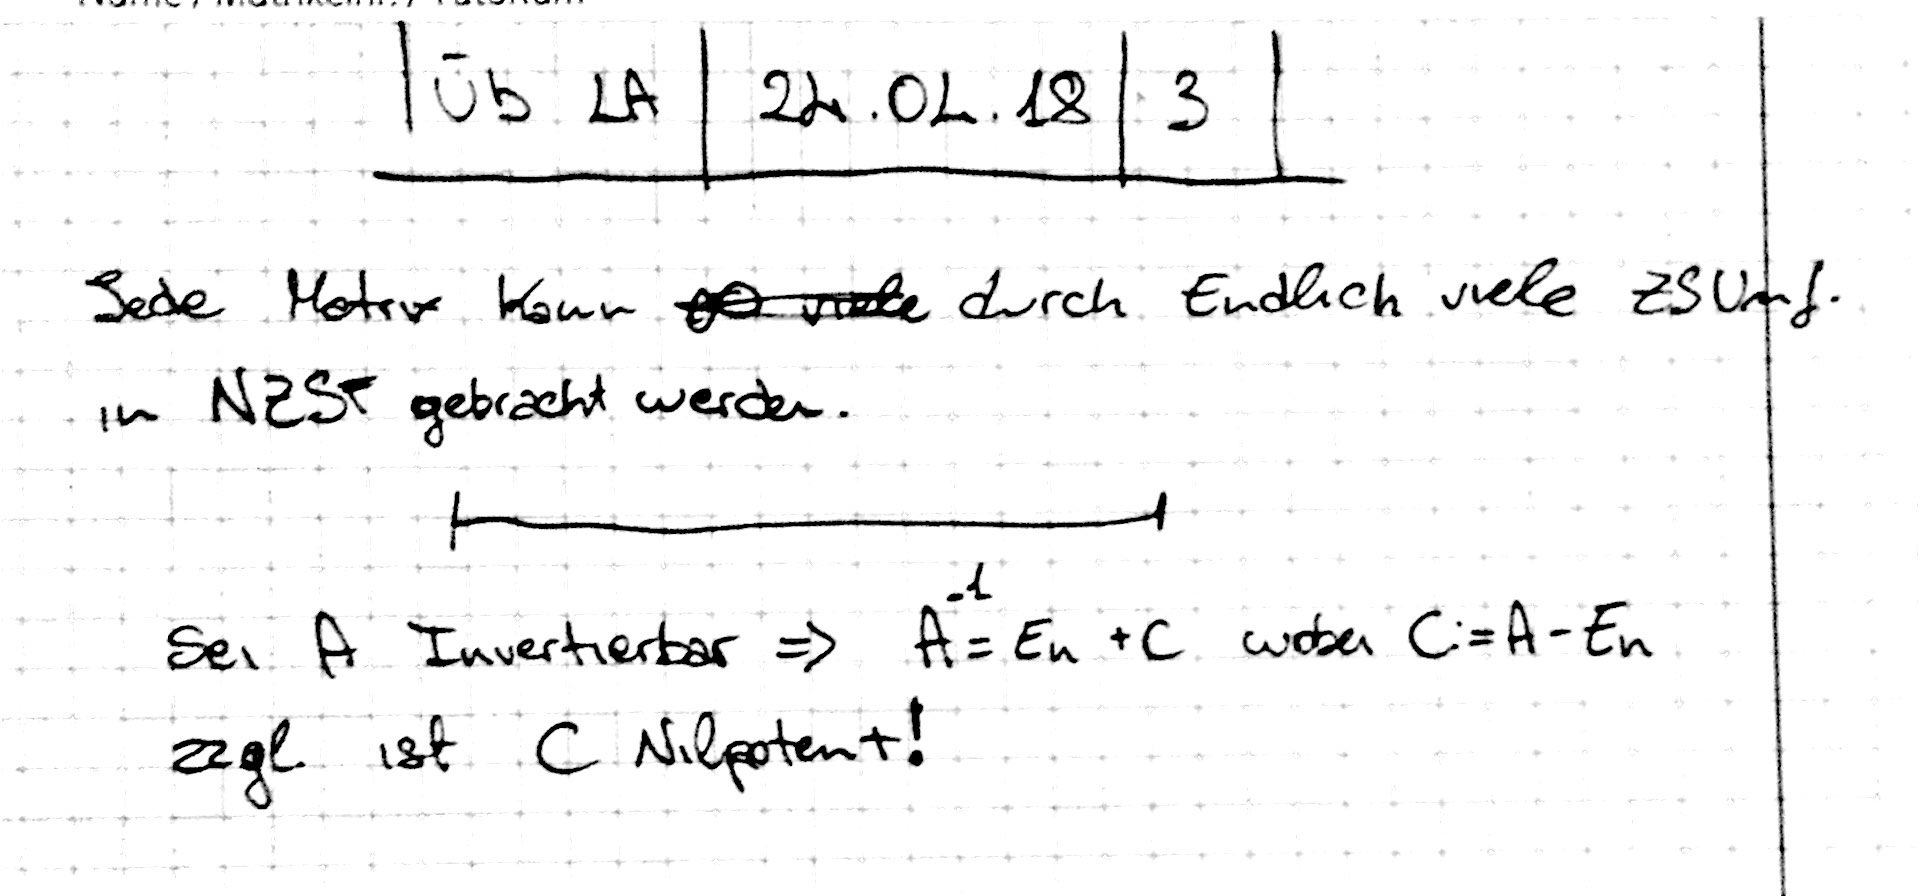 Name / Matrikelnr. / Tutorium
Üb LA 24.04.18 3
Jede Matrix kann durch Endlich viele ZSUmf.
in NZSF gebracht werden.
Sei A Invertierbar => A⁻¹ = En + C wobei C := A - En
zzgl. ist C Nilpotent!